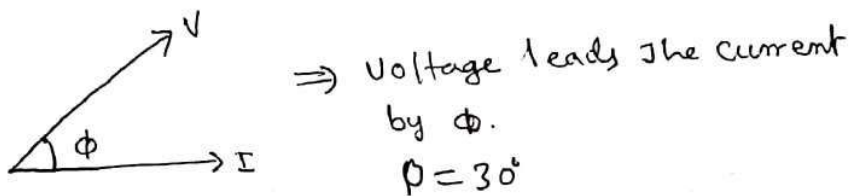 V
⇒ Voltage leads the current
by Φ.
ϕ
I
Φ = 30°